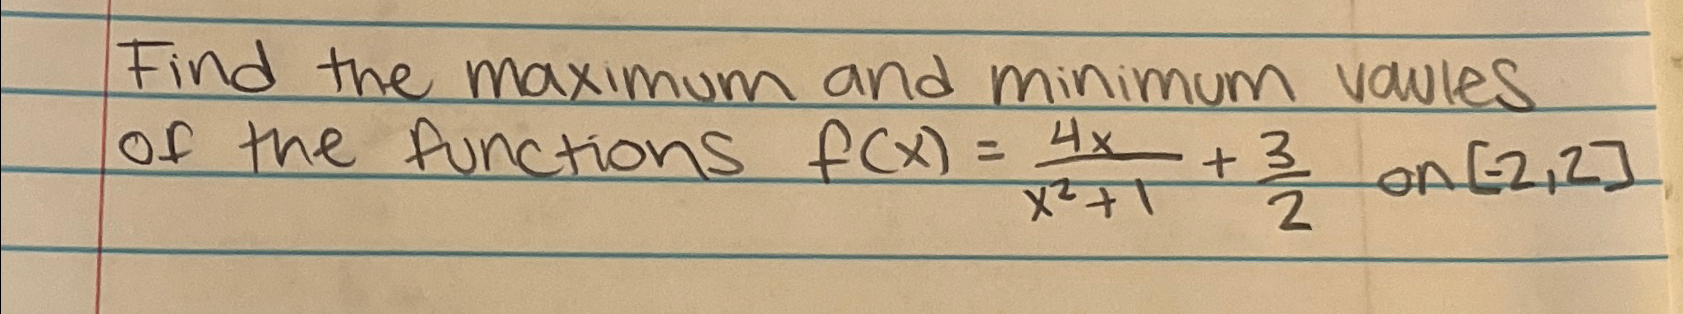 Find the maximum and minimum vaules
of the functions f(x) = 4x/(x²+1) + 3/2 on [-2,2]